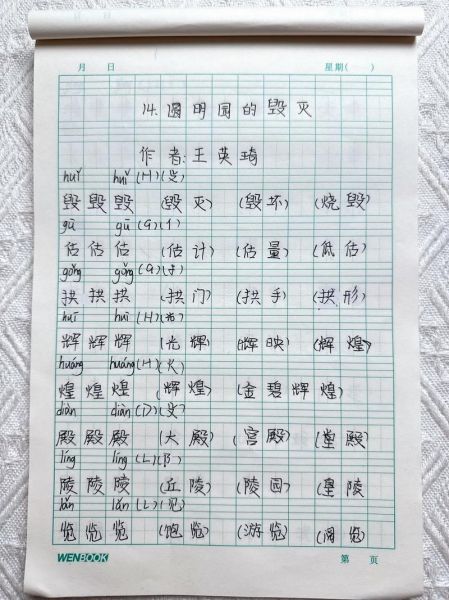 月 日 星期( )
14.圆明园的毁灭
作者:王英琦
huǐ huǐ (H)(殳)
毁毁毁 (毁灭) (毁坏) (烧毁)
gū gū (G)(亻)
估估估 (估计) (估量) (低估)
gǒng gǒng (G)(扌)
拱拱拱 (拱门) (拱手) (拱形)
huī huī (H)(光)
辉辉辉 (光辉) (辉映) (辉煌)
huáng huáng (H)(火)
煌煌煌 (辉煌) (金碧辉煌)
diàn diàn (D)(殳)
殿殿殿 (大殿) (宫殿) (堂殿)
líng líng (L)(阝)
陵陵陵 (丘陵) (陵园) (皇陵
lǎn lǎn (L)(见)
览览览 (饱览) (游览) (阅览)
WENBOOK 第 页